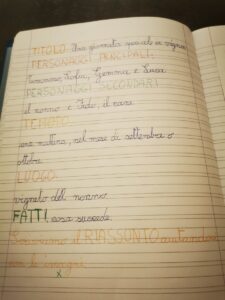 TITOLO: Una giornata speciale in vigna
PERSONAGGI PRINCIPALI:
Tommaso, Viola, Gemma e Luca
PERSONAGGI SECONDARI
il nonno e Fido, il cane
TEMPO:
una mattina, nel mese di settembre o
ottobre
LUOGO:
vigneto del nonno
FATTI: cosa succede
Scriviamo il RIASSUNTO aiutandoci
con le imagini
x